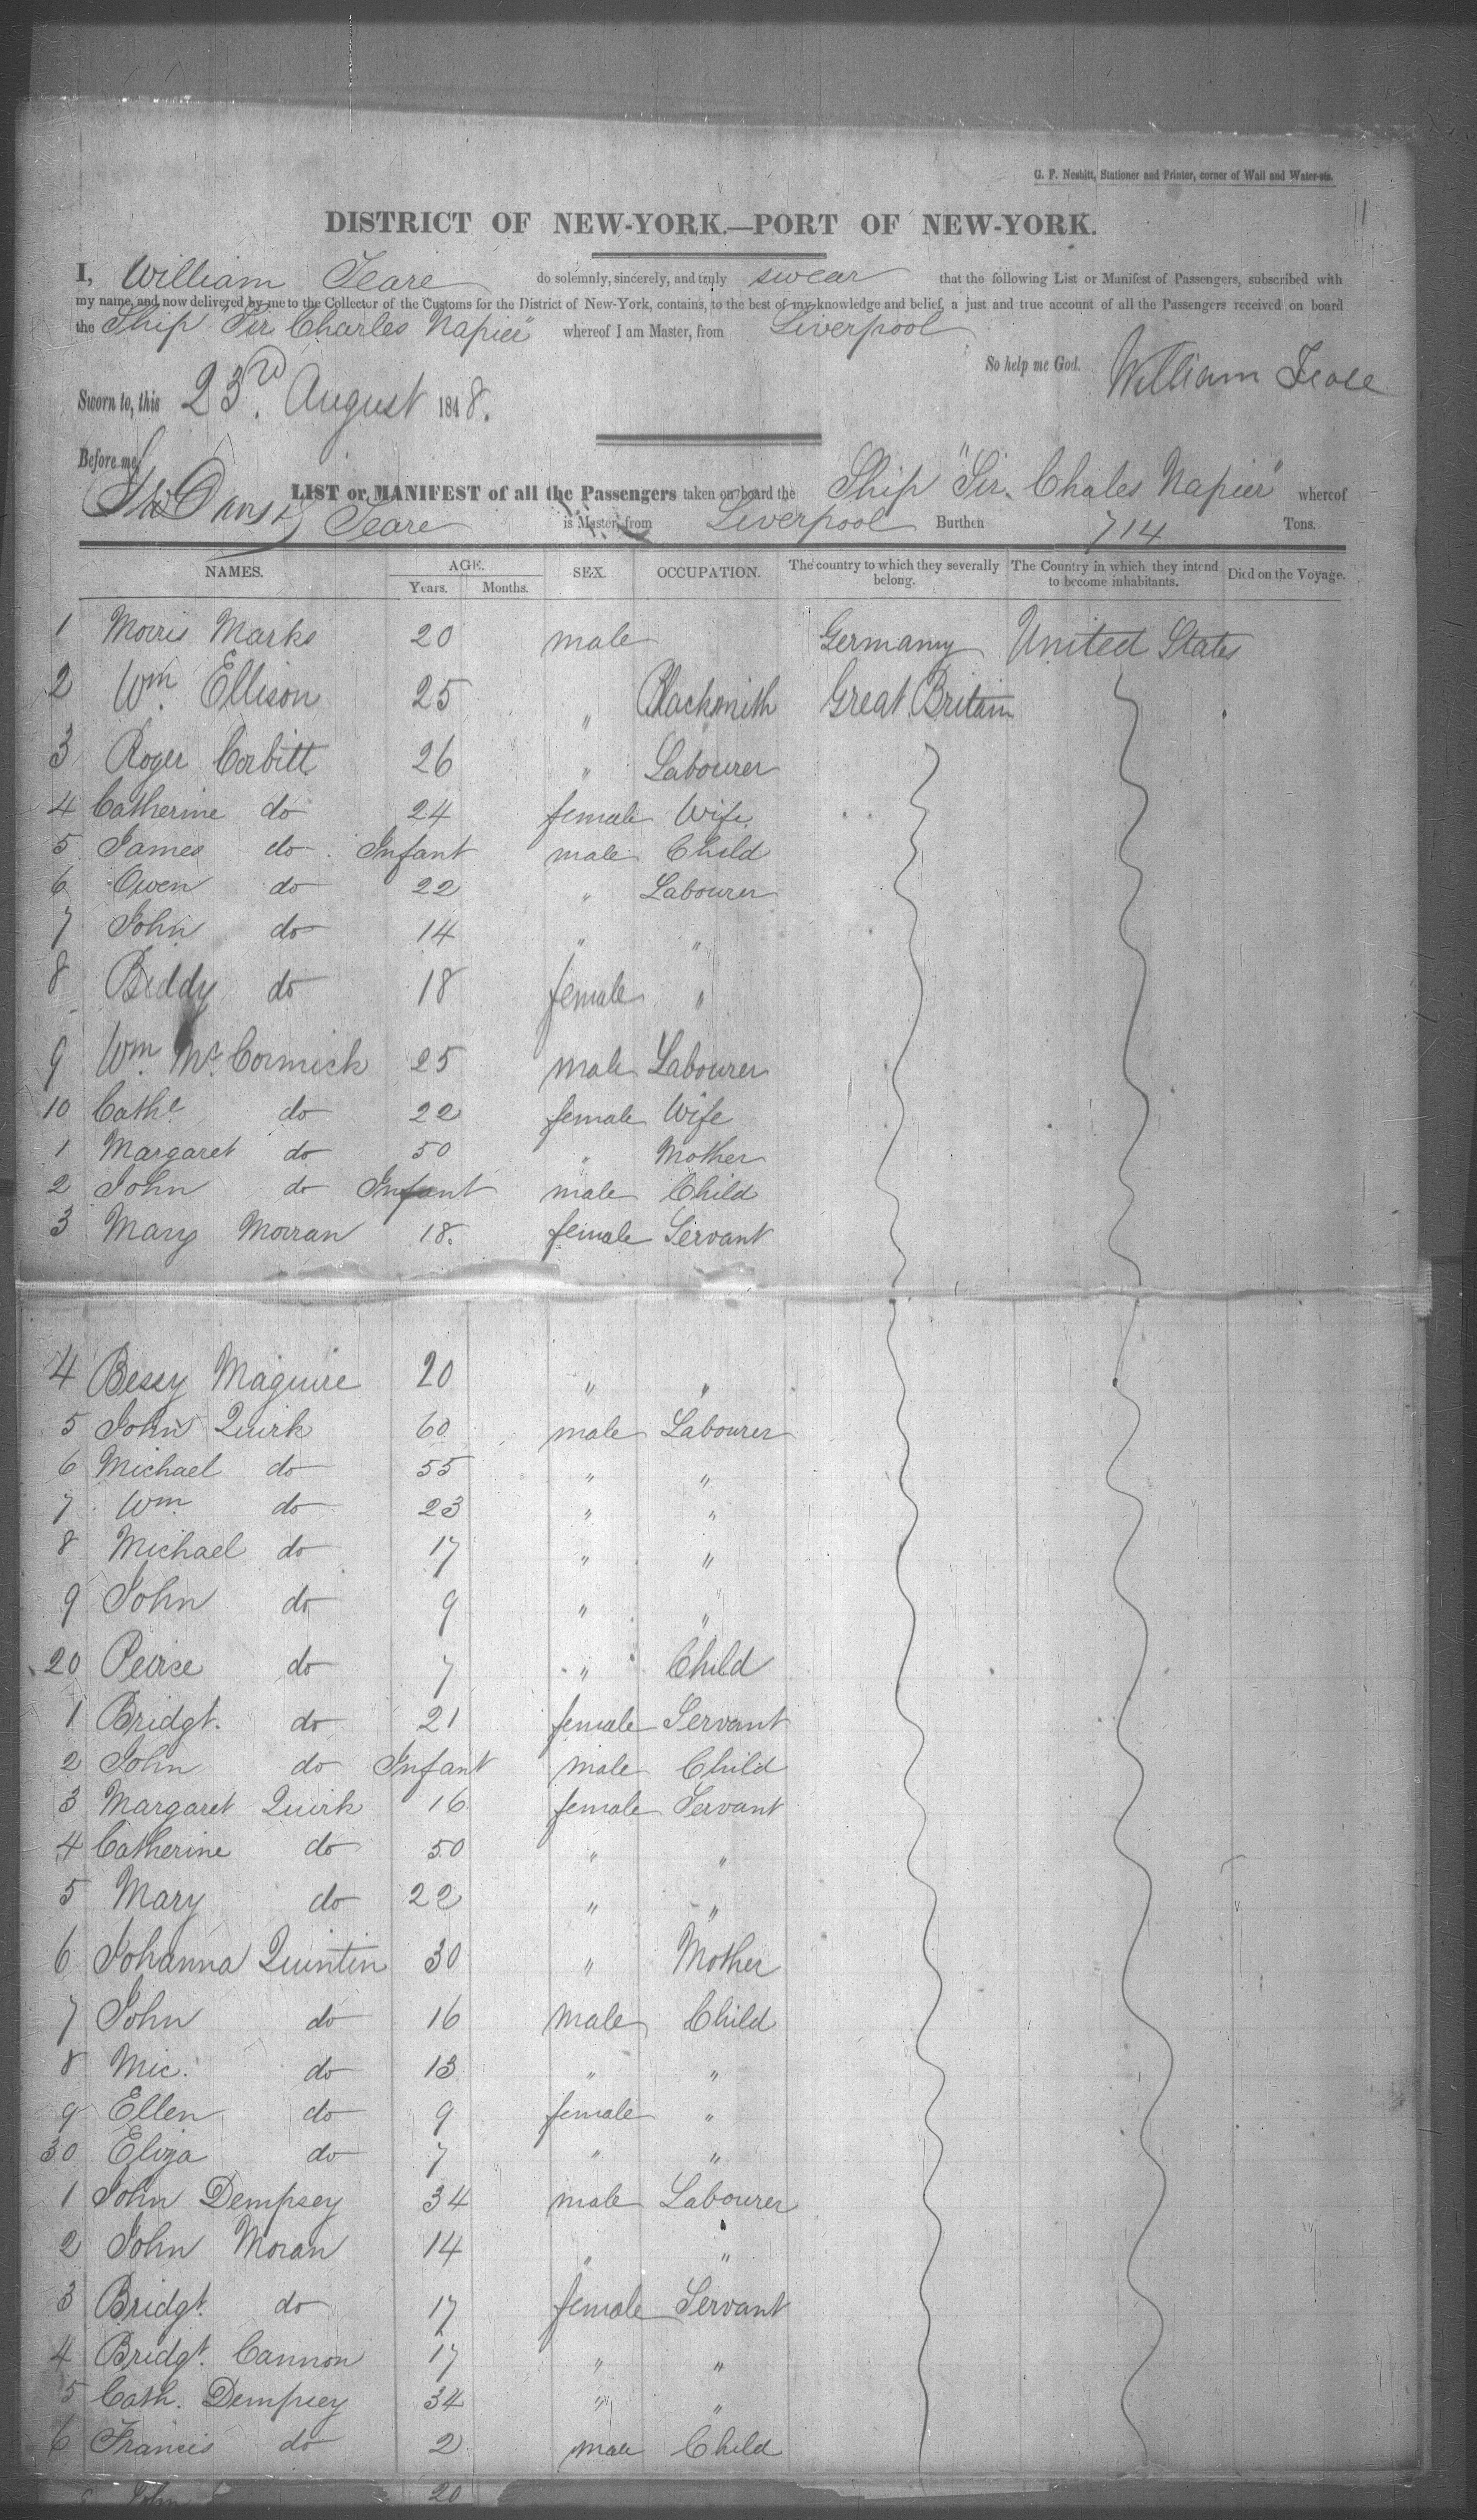 G. F. Nesbitt, Stationer and Printer, corner of Wall and Water-sts.
DISTRICT OF NEW-YORK.—PORT OF NEW-YORK.
I, William Teare do solemnly, sincerely, and truly swear that the following List or Manifest of Passengers, subscribed with
my name, and now delivered by me to the Collector of the Customs for the District of New-York, contains, to the best of my knowledge and belief, a just and true account of all the Passengers received on board
the Ship "Sir Charles Napier" whereof I am Master, from Liverpool
So help me God. William Teare
Sworn to, this 23rd August 1848.
Before me,
LIST or MANIFEST of all the Passengers taken on board the Ship "Sir Chales Napier" whereof
Teare is Master, from Liverpool Burthen 714 Tons.
NAMES. AGE. Years. Months. SEX. OCCUPATION. The country to which they severally belong. The Country in which they intend to become inhabitants. Died on the Voyage.
1 Morris Marks 20 male Germany United States
2 Wm. Ellison 25 " Blacksmith Great Britain
3 Roger Corbitt 26 " Labourer
4 Catherine do 24 female Wife
5 James do Infant male Child
6 Owen do 22 " Labourer
7 John do 14 " "
8 Biddy do 18 female "
9 Wm. McCormick 25 male Labourer
10 Cathe do 22 female Wife
1 Margaret do 50 " Mother
2 John do Infant male Child
3 Mary Morran 18. female Servant
4 Bessy Maguire 20 " "
5 John Quirk 60 male Labourer
6 Michael do 55 " "
7 Wm do 23 " "
8 Michael do 17 " "
9 John do 9 " "
20 Peirce do 7 " Child
1 Bridgt. do 21 female Servant
2 John do Infant male Child
3 Margaret Quirk 16 female Servant
4 Catherine do 50 " "
5 Mary do 22 " "
6 Johanna Quintin 30 " Mother
7 John do 16 male Child
8 Mic. do 13 " "
9 Ellen do 9 female "
30 Eliza do 7 " "
1 John Dempsey 34 male Labourer
2 John Moran 14 " "
3 Bridgt. do 17 female Servant
4 Bridgt. Cannon 17 " "
5 Cath. Dempsey 34 " "
6 Francis do 2 male Child
John 20